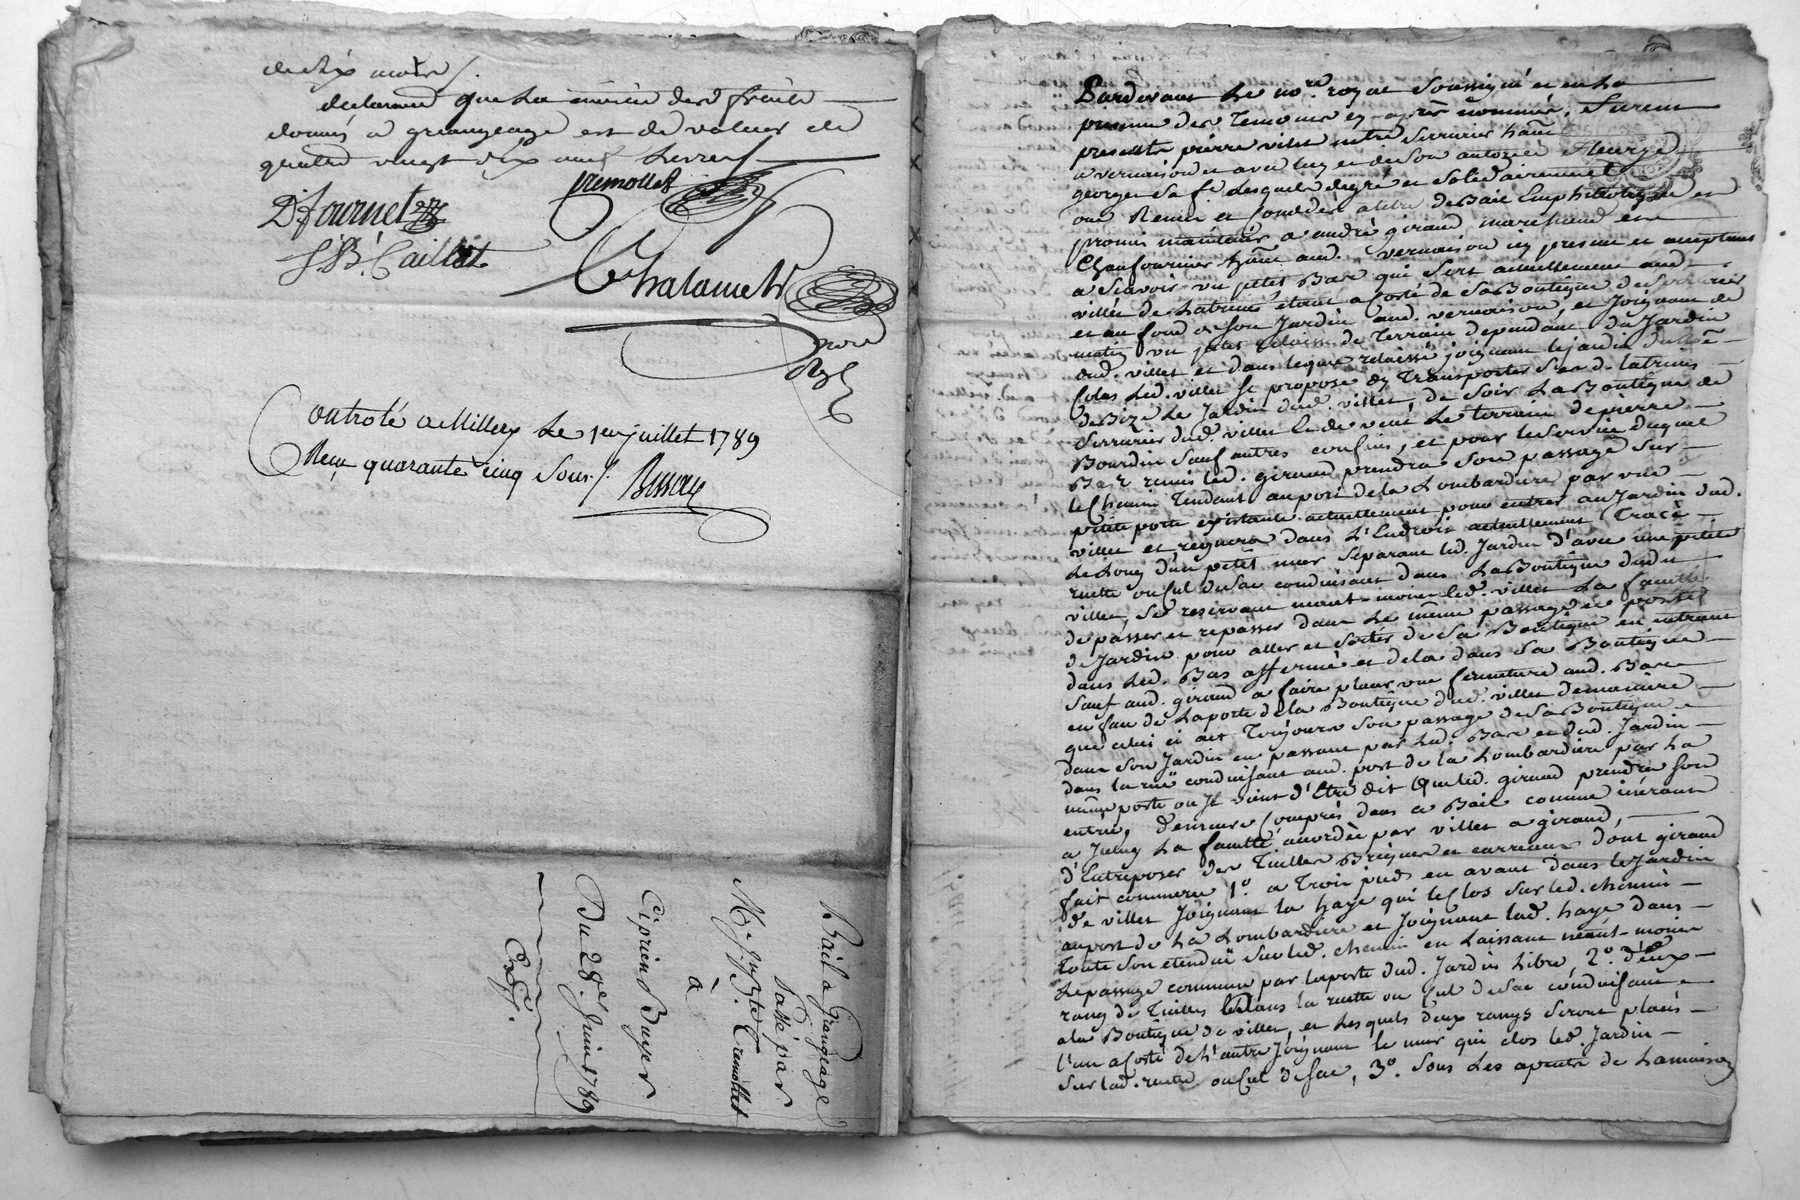 de dix mots /.
declarant que la moitié desd. fruits
donnés a grangeage est de valeur de
quatre vingt dix neuf livres /.
Tremollet
D. fournet
J. B. Caillot
Chalamel
nore
Royl
Controlé a Millery le 1er juillet 1789
Reçu quarante cinq sous /.
Bail a Grangeage
Passé par
Mr. Tremollet
à
Ciprien Buyer
Du 28e. Juin 1789
Expé.
Pardevant le nore. royal soussigné et en la
presence des temoins cy après nommés, furent
presents pierre villet mtre serrurier habt.
a vernaison et avec luy et de son autorité
george sa fe. lesquels de gré et solidairement
ont remis et a titre de Bail Emphiteotique et
promis maintenir a andré giraud marchand et
chaufournier habt. aud. vernaison icy present et acceptant
a sçavoir un petit Bas qui sert actuellement aud.
villet de latrines étant a costé de sa Boutique de serrurier
et au fond de son Jardin aud. vernaison, et Joignant de
matin un petit relaissé de terrain dependant du Jardin
dud. villet et dans lequel relaissé joignant le jardin
Colas led. villet se propose de transporter sesd. latrines
de Bize le Jardin dud. villet, de soir la Boutique de
serrurier dud. villet & de vent le terrain de pierre
Bourdin sauf autres confins, et pour le service duquel
Bas remis led. giraud prendra son passage sur
le chemin tendant au port de la Lombardiere par une
petite porte existante actuellement pour entrer au Jardin dud.
villet et regnera dans l'Endroit actuellement tracé
le long d'un petit mur separant led. Jardin d'avec une petite
ruette ou cul de sac conduisant dans la Boutique dudit
villet, se reservant neant-moins led. villet la faculté
de passer et repasser dans le même passage et porte
de Jardin pour aller et sortir de sa Boutique en entrant
dans led. Bas affermé et de la dans sa Boutique
sauf aud. giraud a faire placer une fermeture aud. Bas
en face de la porte de la Boutique dud. villet de maniere
que celui ci ait toujours son passage de sa Boutique
dans son Jardin en passant par led. Bas et dud. Jardin
dans la rue conduisant aud. port de la Lombardiere par la
même porte ou Jl vient d'être dit que led. giraud prendra son
entrée, demeure compris dans ce Bail comme inherant
a Jceluy la faculté accordée par villet a giraud,
d'Entreposer des tuilles Briques et carreaux dont giraud
fait commerce 1o. a trois pieds en avant dans le Jardin
de villet Joignant la haye qui le clos sur led. chemin
au port de la Lombardiere et Joignant lad. haye dans
toute son etendue sur led. chemin en laissant neant-moins
le passage commun par la porte dud. Jardin libre, 2o. deux
rangs de tuilles dans la ruette ou cul de sac conduisant
a la Boutique de villet, et lesquels deux rangs seront placés
l'un a costé de l'autre Joignant le mur qui clos led. Jardin
sur lad. ruette ou cul de sac, 3o. sous les apents de la maison